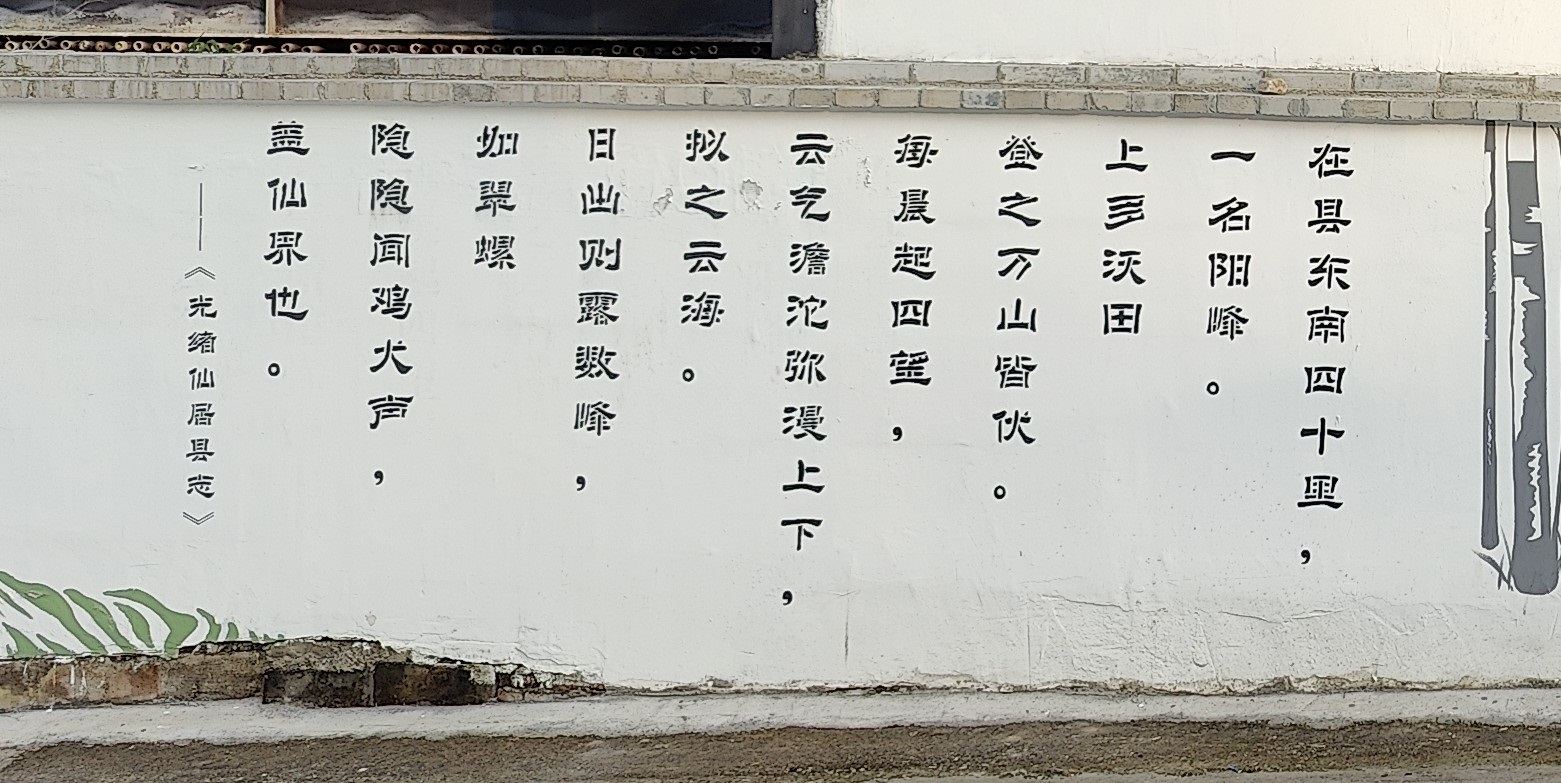 在县东南四十里，
一名阳峰。
上多沃田
登之万山皆伏。
每晨起四望，
云气澹沱弥漫上下，
拟之云海。
日出则露数峰，
如翠螺
隐隐闻鸡犬声，
盖仙界也。
——《光绪仙居县志》